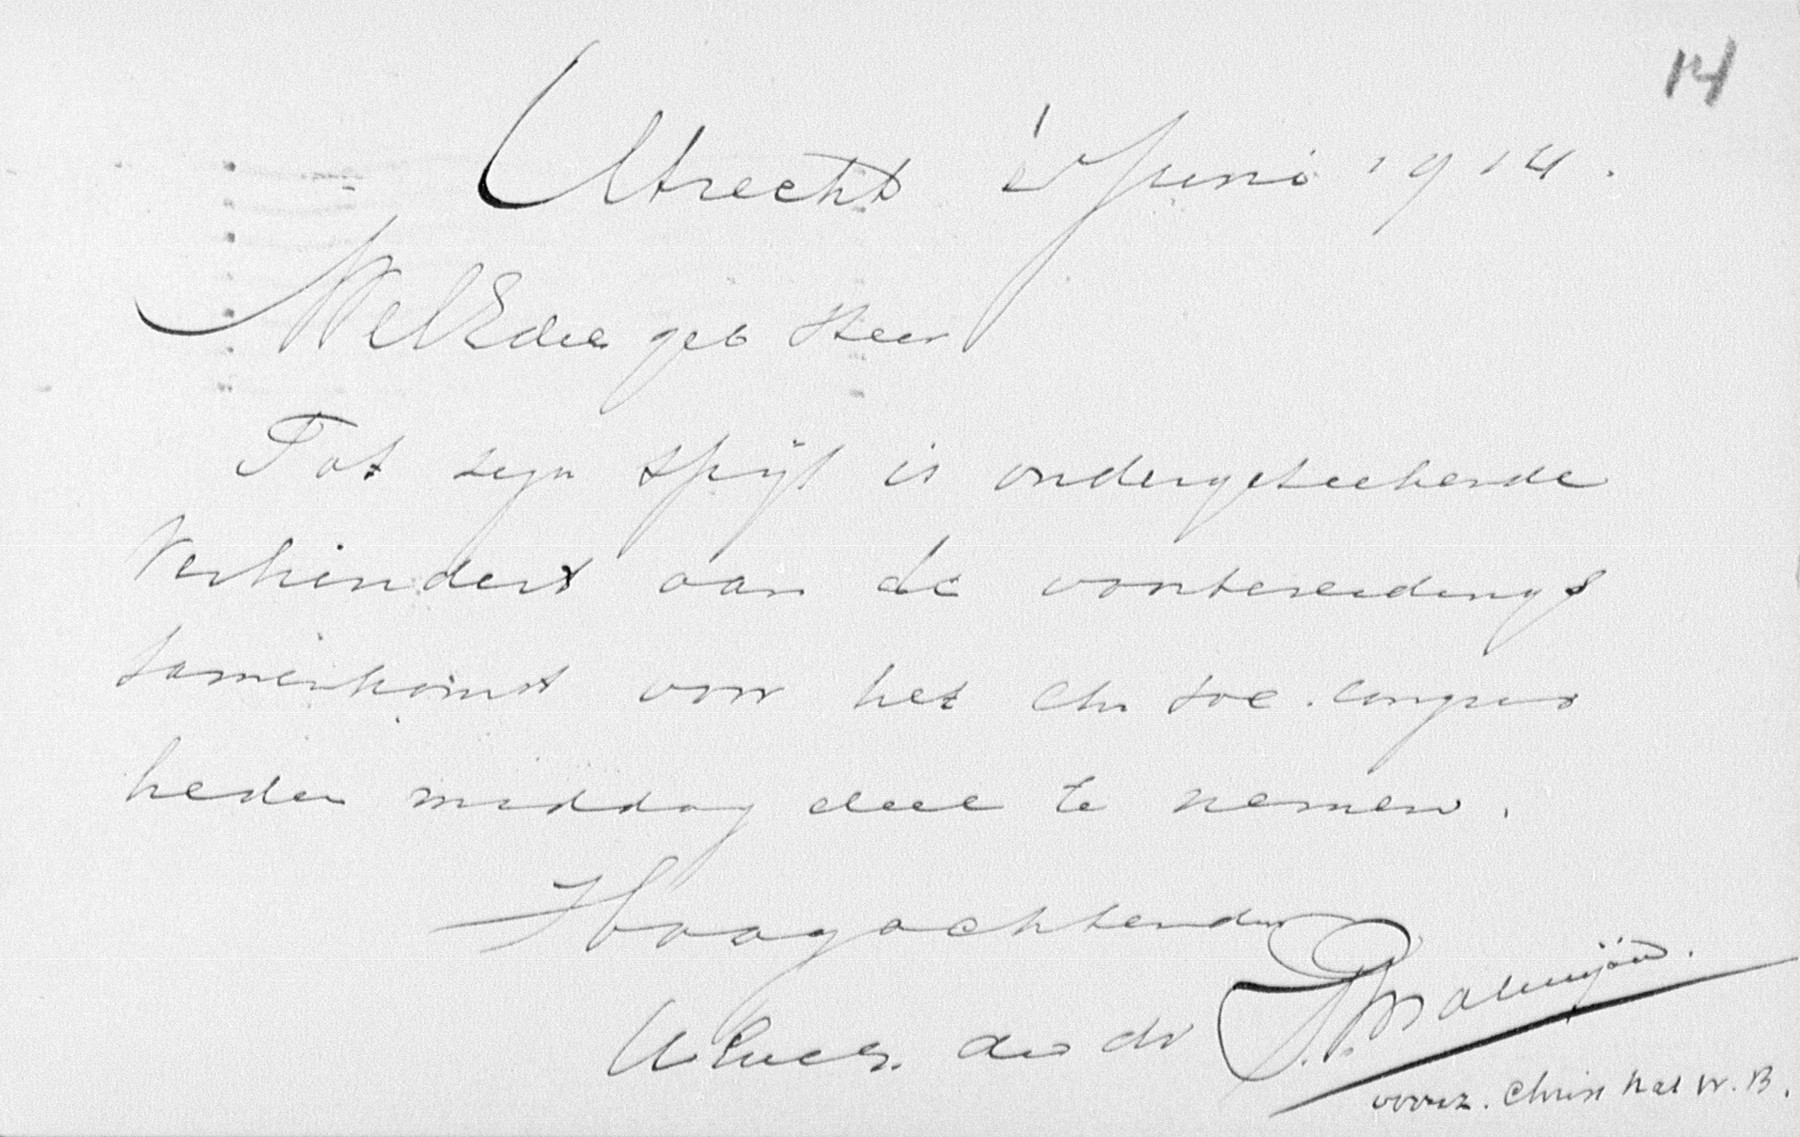 14
Utrecht Juni 1914.
WelEdele geb Heer
Tot zijn spijt is ondergeteekende
verhinderd aan de voorbereidings
samenkomst voor het Chr soc. congres
heden middag deel te nemen.
Hoogachtend
UEwEg. dw dr
voorz. Christ Nat W. B.